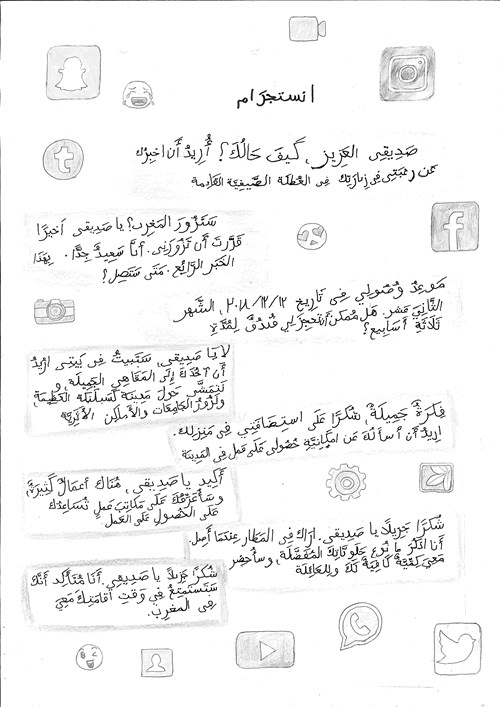 انستجرام
صَدِيقِي العَزِيز، كَيفَ حَالُكَ؟ أُرِيدُ أَن اخبِرُك
عَن رغبَتِي فِي زيارَتِكَ فِي العُطلَة الصَّيفِيَّة القَادِمة
سَتَزُور المَغرِب؟ يا صَدِيقِي اَخِيرًا
قَرَّرتَ أَن تَزُورَنِي. أنَا سَعِيدٌ جِدًّا. بِهَذَا
الخَبَر الرَّائِع. مَتَى سَتَصِل؟
مَوعِدُ وُصُولِي فِي تَارِيخ ٢٠١٨/١٢/١٢، الشَّهر
الثَّانِيَ عَشَر. هَل مُمكَن أن تَحجِزَ لِي فُندُقٌ لِمُدَّةِ
ثَلَاثَةِ أَسَابِيع؟
لا يَا صَدِيقِي، سَتَبِيتُ فِي بَيتِي اُرِيدُ
أَن آخُذَكَ إِلَى المَقَاهِي الجَمِيلَة، و
نَتَمَشَّى حَولَ مَدِينَة العَظِيمَة،
ونَزُورُ الجَامِعَات والأَمَاكِن الأَثَرِيَّة
فِكرَةٌ جَمِيلَةٌ، شُكرًا عَلَى استِضَافَتِي فِي مَنزِلِك.
اِرِيدُ أَن أسألُكَ عَن امكَانِيَّةِ حُصُولِي عَلَى عَمَل فِي المَدِينَة
أَكِيد يا صَدِيقِي، هُنَاكَ أعمَالٌ كَثِيرَةٌ،
وسَأُعَرِّفُكَ عَلَى مَكَاتِبِ عَمَلٍ تُسَاعِدُك
عَلَى الحُصُولِ عَلَى العَمَل
شُكرًا جَزِيلًا يا صَدِيقِي. اَرَاك فِي المَطَار عِندَمَا أَصِل.
أَنا اتذَكَّرُ مَا نَوع حَلَوِيَّاتِكَ المُفَضَّلَة، وسأُحضِر
مَعِي كَمِّيَّةً كَافِيَةً لَكَ ولِلعَائِلَة
شُكرًا جَزِيلًا يا صَدِيقِي. أَنَا مُتَأَكِّد أَنَّكَ
سَتَستَمتِعُ فِي وَقتِ اقَامَتِكَ مَعِي
فِي المَغرِب.